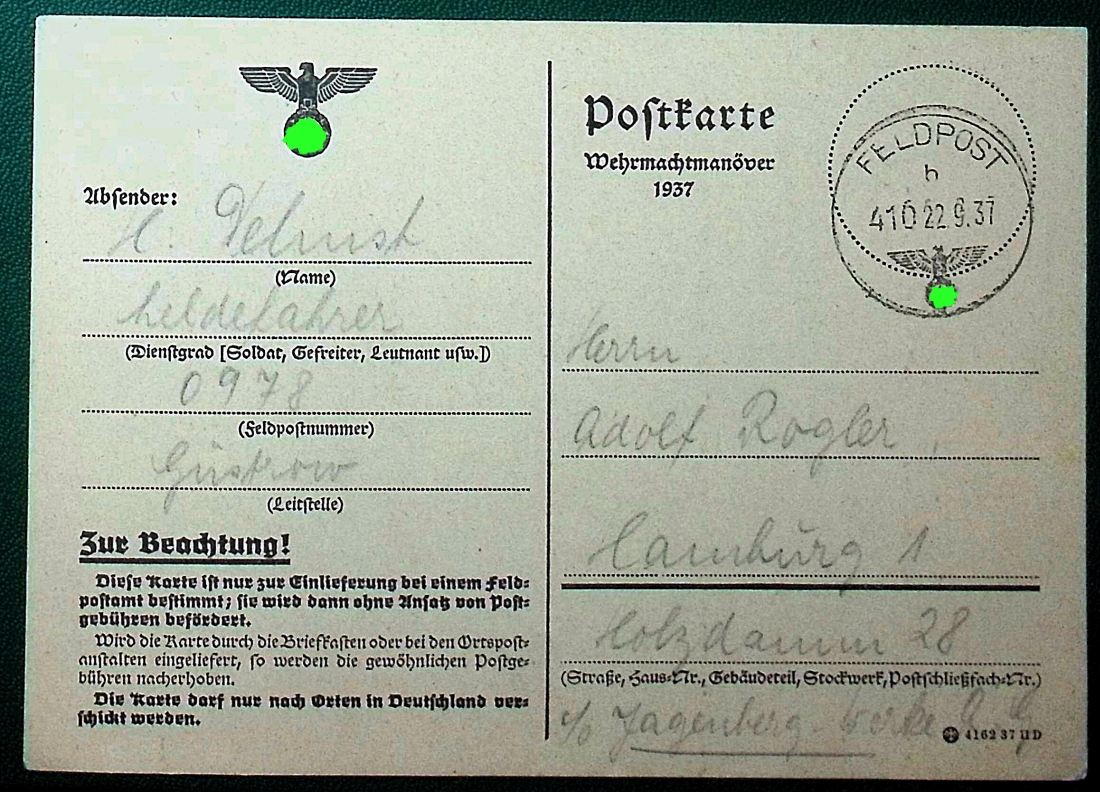 Absender:
H. Delmst
(Name)
Meldefahrer
(Dienstgrad [Soldat, Gefreiter, Leutnant usw.])
0978
(Feldpostnummer)
Güstrow
(Leitstelle)
Zur Beachtung!
Diese Karte ist nur zur Einlieferung bei einem Feld-
postamt bestimmt; sie wird dann ohne Ansatz von Post-
gebühren befördert.
Wird die Karte durch die Briefkasten oder bei den Ortspost-
anstalten eingeliefert, so werden die gewöhnlichen Postge-
bühren nacherhoben.
Die Karte darf nur nach Orten in Deutschland ver-
schickt werden.
Postkarte
Wehrmachtmanöver
1937
FELDPOST
h
410 22 9.37
Herrn
Adolf Rogler,
Hamburg 1
Holzdamm 28
(Straße, Haus-Nr., Gebäudeteil, Stockwerk, Postschließfach-Nr.)
c/o Jagenberg-Werke A.G
4162 37 II D